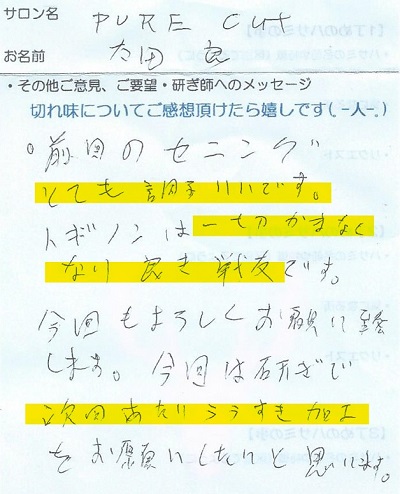 サロン名 PURE Cut
お名前 太田 良
・その他ご意見、ご要望・研ぎ師へのメッセージ
切れ味についてご感想頂けたら嬉しです(.-人-.)
。前回のセニング
とても調子いいです。
トギノンは一切かまなく
なり良き戦友です。
今回もよろしくお願い致
します。今回は研ぎで
次回あたりうすき加工
をお願いしたいと思います。